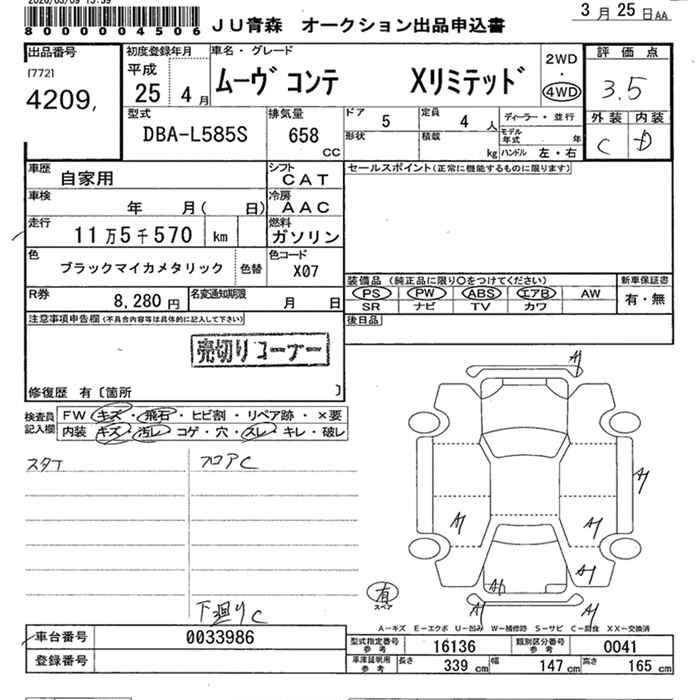 8000004506
ＪＵ青森 オークション出品申込書
3月25日AA
出品番号
[772]
4209,
初度登録年月
平成
25 4月
車名・グレード
ムーヴ コンテ Xリミテッド
2WD
・
4WD
評価点
3.5
外装 内装
C D
型式
DBA-L585S
排気量
658
CC
ドア
5
定員
4 人
ディーラー・並行
形状
積載
kg
モデル年式 年
ハンドル 左・右
車歴
自家用
シフト
CAT
セールスポイント(正常に機能するものに限ります)
車検
年 月( 日)
冷房
AAC
走行
11万5千570 km
燃料
ガソリン
色
ブラックマイカメタリック
色替
色コード
X07
装備品 (純正品に限り○をつけてください)
新車保証書
PS PW ABS エアB AW
有・無
SR ナビ TV カワ
R券
8,280 円
名変通知期限
月 日
後日品
注意事項申告欄(不具合内容等は具体的に記入して下さい)
売切りコーナー
修復歴 有〔箇所 〕
検査員
記入欄
FW キズ・飛石・ヒビ割・リペア跡・×要
内装 キズ・汚レ・コゲ・穴・スレ・キレ・破レ
スタケ フロアC
下廻りC
A A A A A A A A
有
スペア
A－キズ E－エクボ U－凹み W－補修跡 S－サビ C－腐食 XX－交換済
車台番号
0033986
登録番号
型式指定番号
参考
16136
類別区分番号
参考
0041
車庫証明用
参考
長さ 339 cm 幅 147 cm 高さ 165 cm